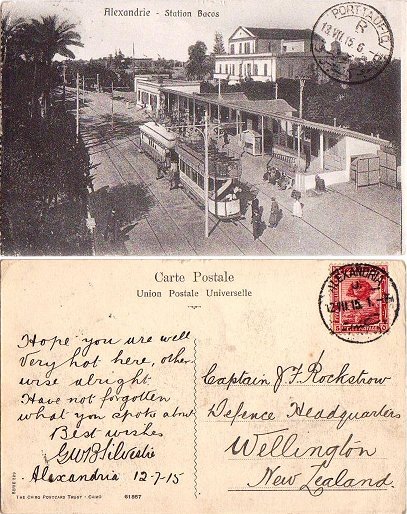 Alexandrie - Station Bacos
PORT TAUFIQ
R
13.VII.15.6
Carte Postale
Union Postale Universelle
ALEXANDRIA
12.VII.15. 1
Hope you are well
Very hot here, other
wise alright.
Have not forgotten
what you spoke about
Best wishes
GWB Silvestie
Alexandria 12-7-15
Captain J. F. Rockstrow
Defence Headquarters
Wellington
New Zealand.
THE CAIRO POSTCARD TRUST - CAIRO